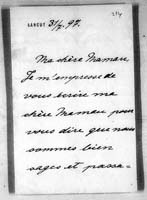 LANCUT 31/5 97.
Ma chère Maman,
Je m'empresse de
vous écrire ma
chère Maman pour
vous dire que nous
sommes bien
sages et passa=